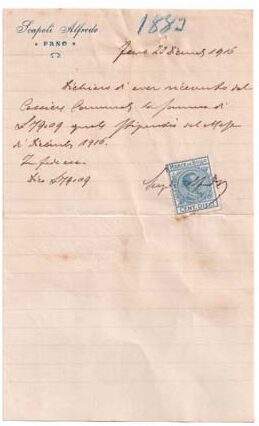 Scapoli Alfredo
FANO
1883
Fano 23 Dicembre 1916
Dichiaro di aver ricevuto dal
Cassiere Comunale la somma di
£ 79.09 quale stipendio del Mese
di Dicembre 1916.
In fede
Dico £ 79.09
MARCA DA BOLLO
CENT. DIECI